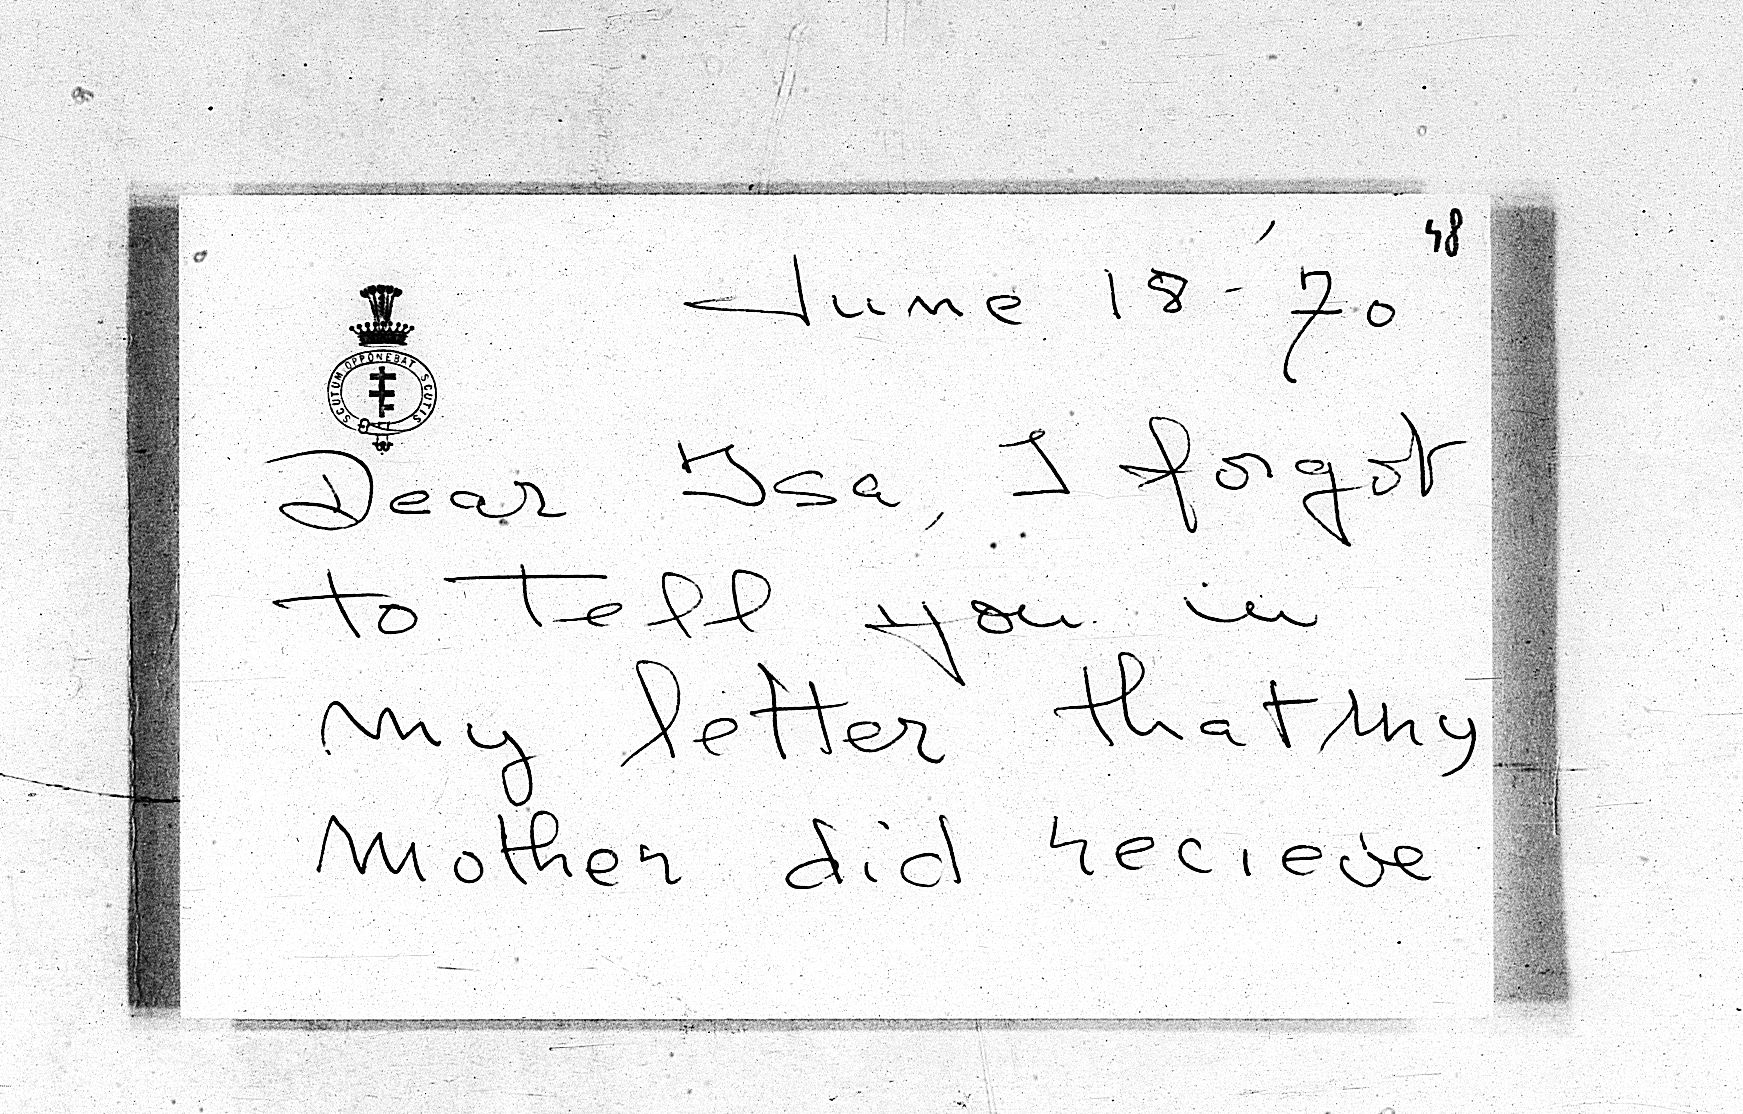 48
June 18 - '70
SCUTUM OPPONEBAT SCUTIS
Dear Isa, I forgot
to tell you in
my letter that my
Mother did recieve